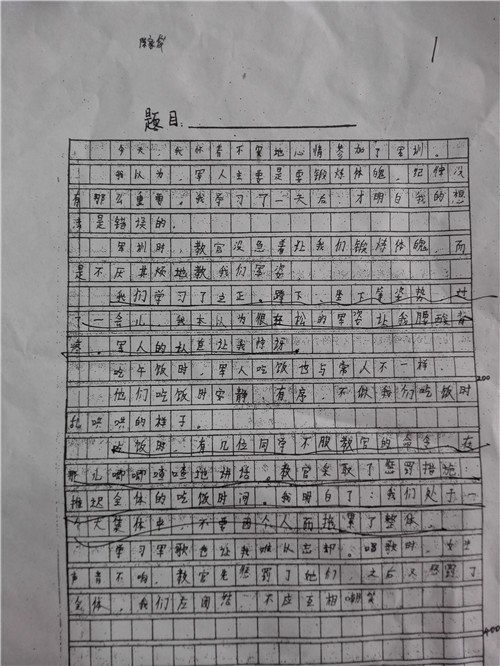 1
题目:
今天,我怀着不寞地心情参加了军训。
我认为,军人主要是要锻炼体魄,纪律没
有那么重要。我学习了一天后,才明白我的想
法是错误的。
军训时,教官没急着让我们锻炼体魄,而
是不厌其烦地教我们军姿
我们学习了立正,蹲下,坐下等姿势,过
了一会儿,我本以为很轻松的军姿让我腰酸背
疼。军人的执意让我惊讶。
吃午饭时,军人吃饭也与常人不一样。
200
他们吃饭时安静,有序,不像我们吃饭时
乱哄哄的样子。
吃饭时,有几位同学不服教官的命令,在
那儿唧唧喳喳地讲话。教官采取了惩罚措施:
推迟全体的吃饭时间。我明白了:我们处于一
个大集体中,不要因个人而拖累了整体。
学习军歌也让我难以忘却,唱歌时,女生
声音不响,教官先惩罚了她们,之后又惩罚了
全体,我们应团结,不应互相嘲笑
400